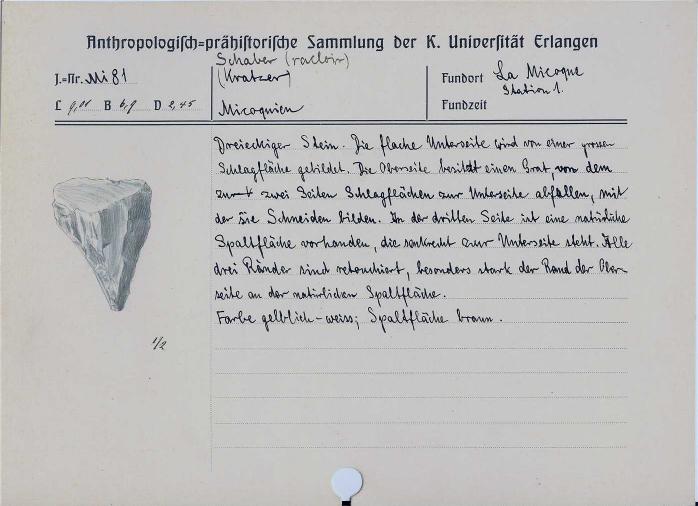 Anthropologisch=prähistorische Sammlung der K. Universität Erlangen
J.=Nr. Mi 81
L 9,01 B 6,9 D 2,45
Schaber (racloir)
(Kratzer)
Micoquien
Fundort La Micoque
Station 1.
Fundzeit
Dreieckiger Stein. Die flache Unterseite wird von einer grossen
Schlagfläche gebildet. Die Oberseite besitzt einen Grat, von dem
zwei Seiten Schlagflächen zur Unterseite abfallen, mit
der sie Schneiden bilden. An der dritten Seite ist eine natürliche
Spaltfläche vorhanden, die senkrecht zur Unterseite steht. Alle
drei Ränder sind retouchiert, besonders stark der Rand der Ober-
seite an der natürlichen Spaltfläche.
Farbe gelblich-weiss; Spaltfläche braun.
1/2